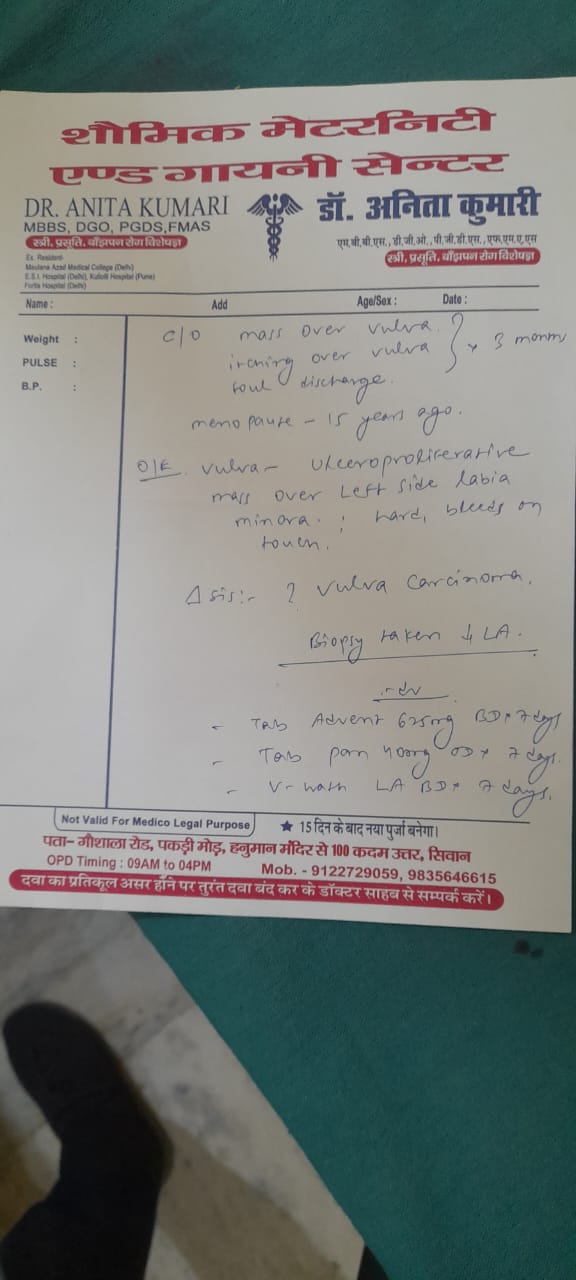 शौमिक मेटरनिटी
एण्ड गायनी सेन्टर
DR. ANITA KUMARI
MBBS, DGO, PGDS,FMAS
स्त्री, प्रसूति, बाँझपन रोग विशेषज्ञ
Ex. Resident-
Maulana Azad Medical College (Delhi)
E.S.I. Hospital (Delhi), Kulolli Hospital (Pune)
Fortis Hospital (Delhi)
डॉ. अनिता कुमारी
एम.बी.बी.एस., डी.जी.ओ., पी.जी.डी.एस., एफ.एम.ए.एस
स्त्री, प्रसूति, बाँझपन रोग विशेषज्ञ
Name : Add Age/Sex : Date :
Weight :
PULSE :
B.P. :
C/O mass over vulva.
itching over vulva } x 3 months
foul discharge.
menopause - 15 years ago.
O/E vulva - ulceroproliferative
mass over Left side labia
minora. ; hard, bleeds on
touch.
Δsis:- ? vulva carcinoma.
Biopsy taken ↓ LA.
adv
- Tab Advent 625mg BD x 7 days
- Tab pan 40mg OD x 7 days.
- V-wash LA BD x 7 days.
Not Valid For Medico Legal Purpose
★ 15 दिन के बाद नया पुर्जा बनेगा।
पता- गौशाला रोड, पकड़ी मोड़, हनुमान मंदिर से 100 कदम उत्तर, सिवान
OPD Timing : 09AM to 04PM Mob. - 9122729059, 9835646615
दवा का प्रतिकूल असर होने पर तुरंत दवा बंद कर के डॉक्टर साहब से सम्पर्क करें।